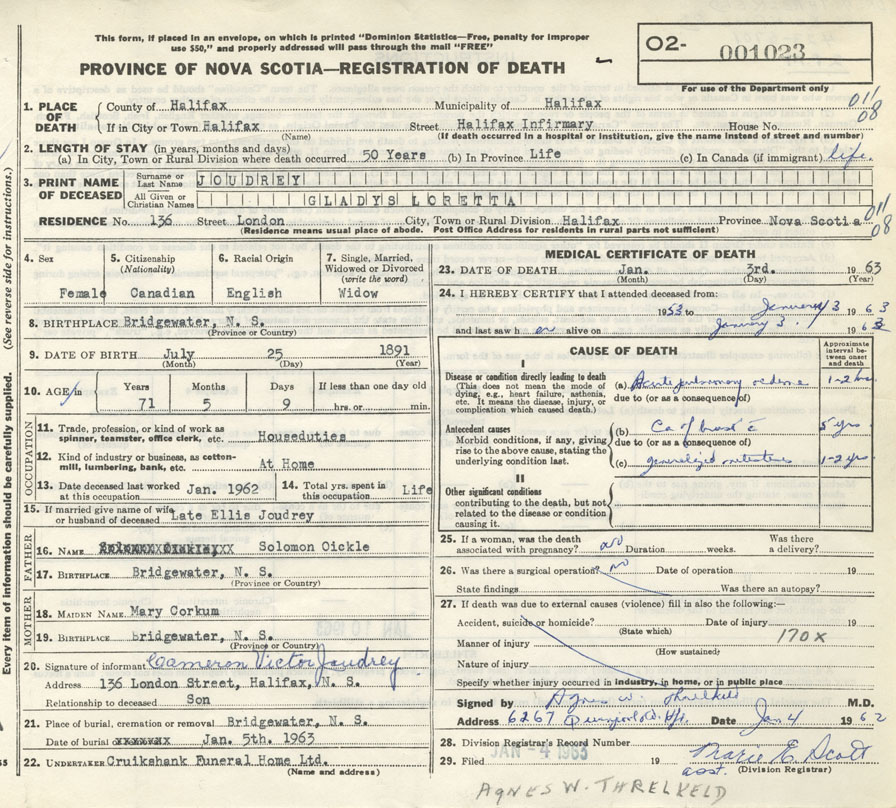 This form, if placed in an envelope, on which is printed "Dominion Statistics—Free, penalty for improper
use $50," and properly addressed will pass through the mail "FREE"
PROVINCE OF NOVA SCOTIA—REGISTRATION OF DEATH
O2- 001023
For use of the Department only
1. PLACE OF DEATH County of Halifax Municipality of Halifax 011
If in City or Town Halifax Street Halifax Infirmary House No. 08
(Name) (If death occurred in a hospital or institution, give the name instead of street and number)
2. LENGTH OF STAY (in years, months and days)
(a) In City, Town or Rural Division where death occurred 50 Years (b) In Province Life (c) In Canada (if immigrant) life.
3. PRINT NAME OF DECEASED Surname or Last Name JOUDREY
All Given or Christian Names GLADYS LORETTA
RESIDENCE No. 136 Street London City, Town or Rural Division Halifax Province Nova Scotia 011 08
(Residence means usual place of abode. Post Office Address for residents in rural parts not sufficient)
(See reverse side for instructions.)
Every item of information should be carefully supplied.
4. Sex 5. Citizenship (Nationality) 6. Racial Origin 7. Single, Married, Widowed or Divorced (write the word)
Female Canadian English Widow
8. BIRTHPLACE Bridgewater, N. S.
(Province or Country)
9. DATE OF BIRTH July 25 1891
(Month) (Day) (Year)
10. AGE in Years Months Days If less than one day old
71 5 9 hrs. or min.
OCCUPATION
11. Trade, profession, or kind of work as spinner, teamster, office clerk, etc. Houseduties
12. Kind of industry or business, as cotton-mill, lumbering, bank, etc. At Home
13. Date deceased last worked at this occupation Jan. 1962 14. Total yrs. spent in this occupation Life
15. If married give name of wife or husband of deceased Late Ellis Joudrey
FATHER
16. NAME Solomon Oickle
17. BIRTHPLACE Bridgewater, N. S.
(Province or Country)
MOTHER
18. MAIDEN NAME Mary Corkum
19. BIRTHPLACE bridgewater, N. S.
(Province or Country)
20. Signature of informant Cameron Victor Joudrey
Address 136 London Street, Halifax, N. S.
Relationship to deceased Son
21. Place of burial, cremation or removal Bridgewater, N. S.
Date of burial xxxxxxx Jan. 5th. 1963
22. UNDERTAKER Cruikshank Funeral Home Ltd.
(Name and address)
MEDICAL CERTIFICATE OF DEATH
23. DATE OF DEATH Jan. 3rd. 1963
(Month) (Day) (Year)
24. I HEREBY CERTIFY that I attended deceased from:
1953 to January 3 1963
and last saw her alive on January 3. 1963
CAUSE OF DEATH
Approximate interval between onset and death
I
Disease or condition directly leading to death
(This does not mean the mode of dying, e.g., heart failure, asthenia, etc. It means the disease, injury, or complication which caused death.)
(a) Acute pulmonary oedema 1-2 hrs.
due to (or as a consequence of)
Antecedent causes
Morbid conditions, if any, giving rise to the above cause, stating the underlying condition last.
(b) Ca of breast c̄ 5 yrs
due to (or as a consequence of)
(c) generalized metastases 1-2 yrs.
II
Other significant conditions
contributing to the death, but not related to the disease or condition causing it.
25. If a woman, was the death associated with pregnancy? no Duration weeks. Was there a delivery?
26. Was there a surgical operation? no Date of operation 19
State findings Was there an autopsy?
27. If death was due to external causes (violence) fill in also the following:—
Accident, suicide or homicide? Date of injury 19
(State which) 170x
Manner of injury
(How sustained)
Nature of injury
Specify whether injury occurred in industry, in home, or in public place
Signed by Agnes W. Threlkeld M.D.
Address 6267 Date Jan 4 1962
28. Division Registrar's Record Number
JAN -4 1963
29. Filed 19 Marie E Scott
asst. (Division Registrar)
AGNES W. THRELKELD